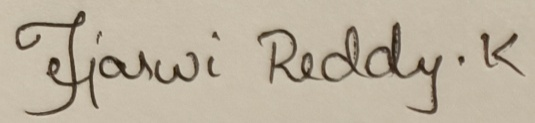 Tejaswi Reddy. K